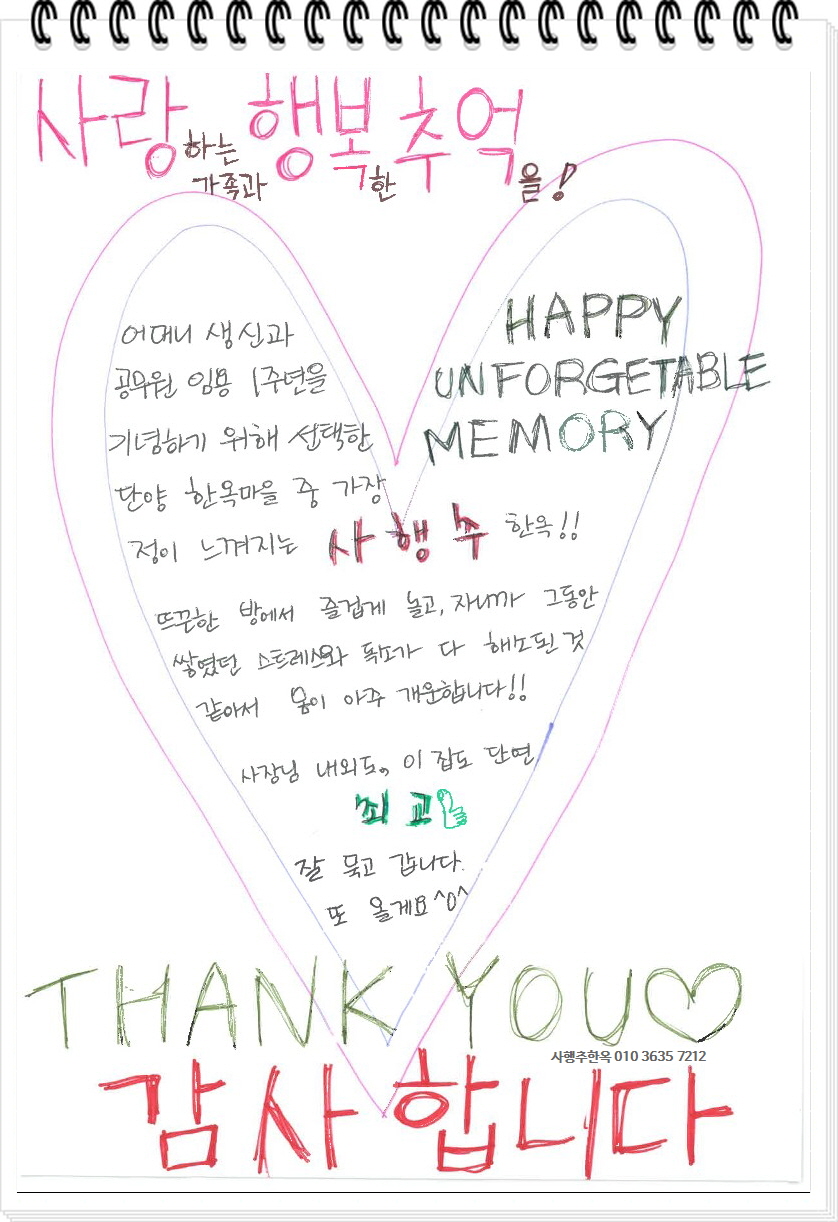 사랑하는 가족과 행복한 추억을!
HAPPY
UNFORGETABLE
MEMORY
어머니 생신과
공무원 임용 1주년을
기념하기 위해 선택한
단양 한옥마을 중 가장
정이 느껴지는 사행추 한옥!!
뜨끈한 방에서 즐겁게 놀고, 자니까 그동안
쌓였던 스트레스와 독소가 다 해소된 것
같아서 몸이 아주 개운합니다!!
사장님 내외도, 이 집도 단연
최고
잘 묵고 갑니다.
또 올게요^0^
THANK YOU♡
사행추한옥 010 3635 7212
감사합니다